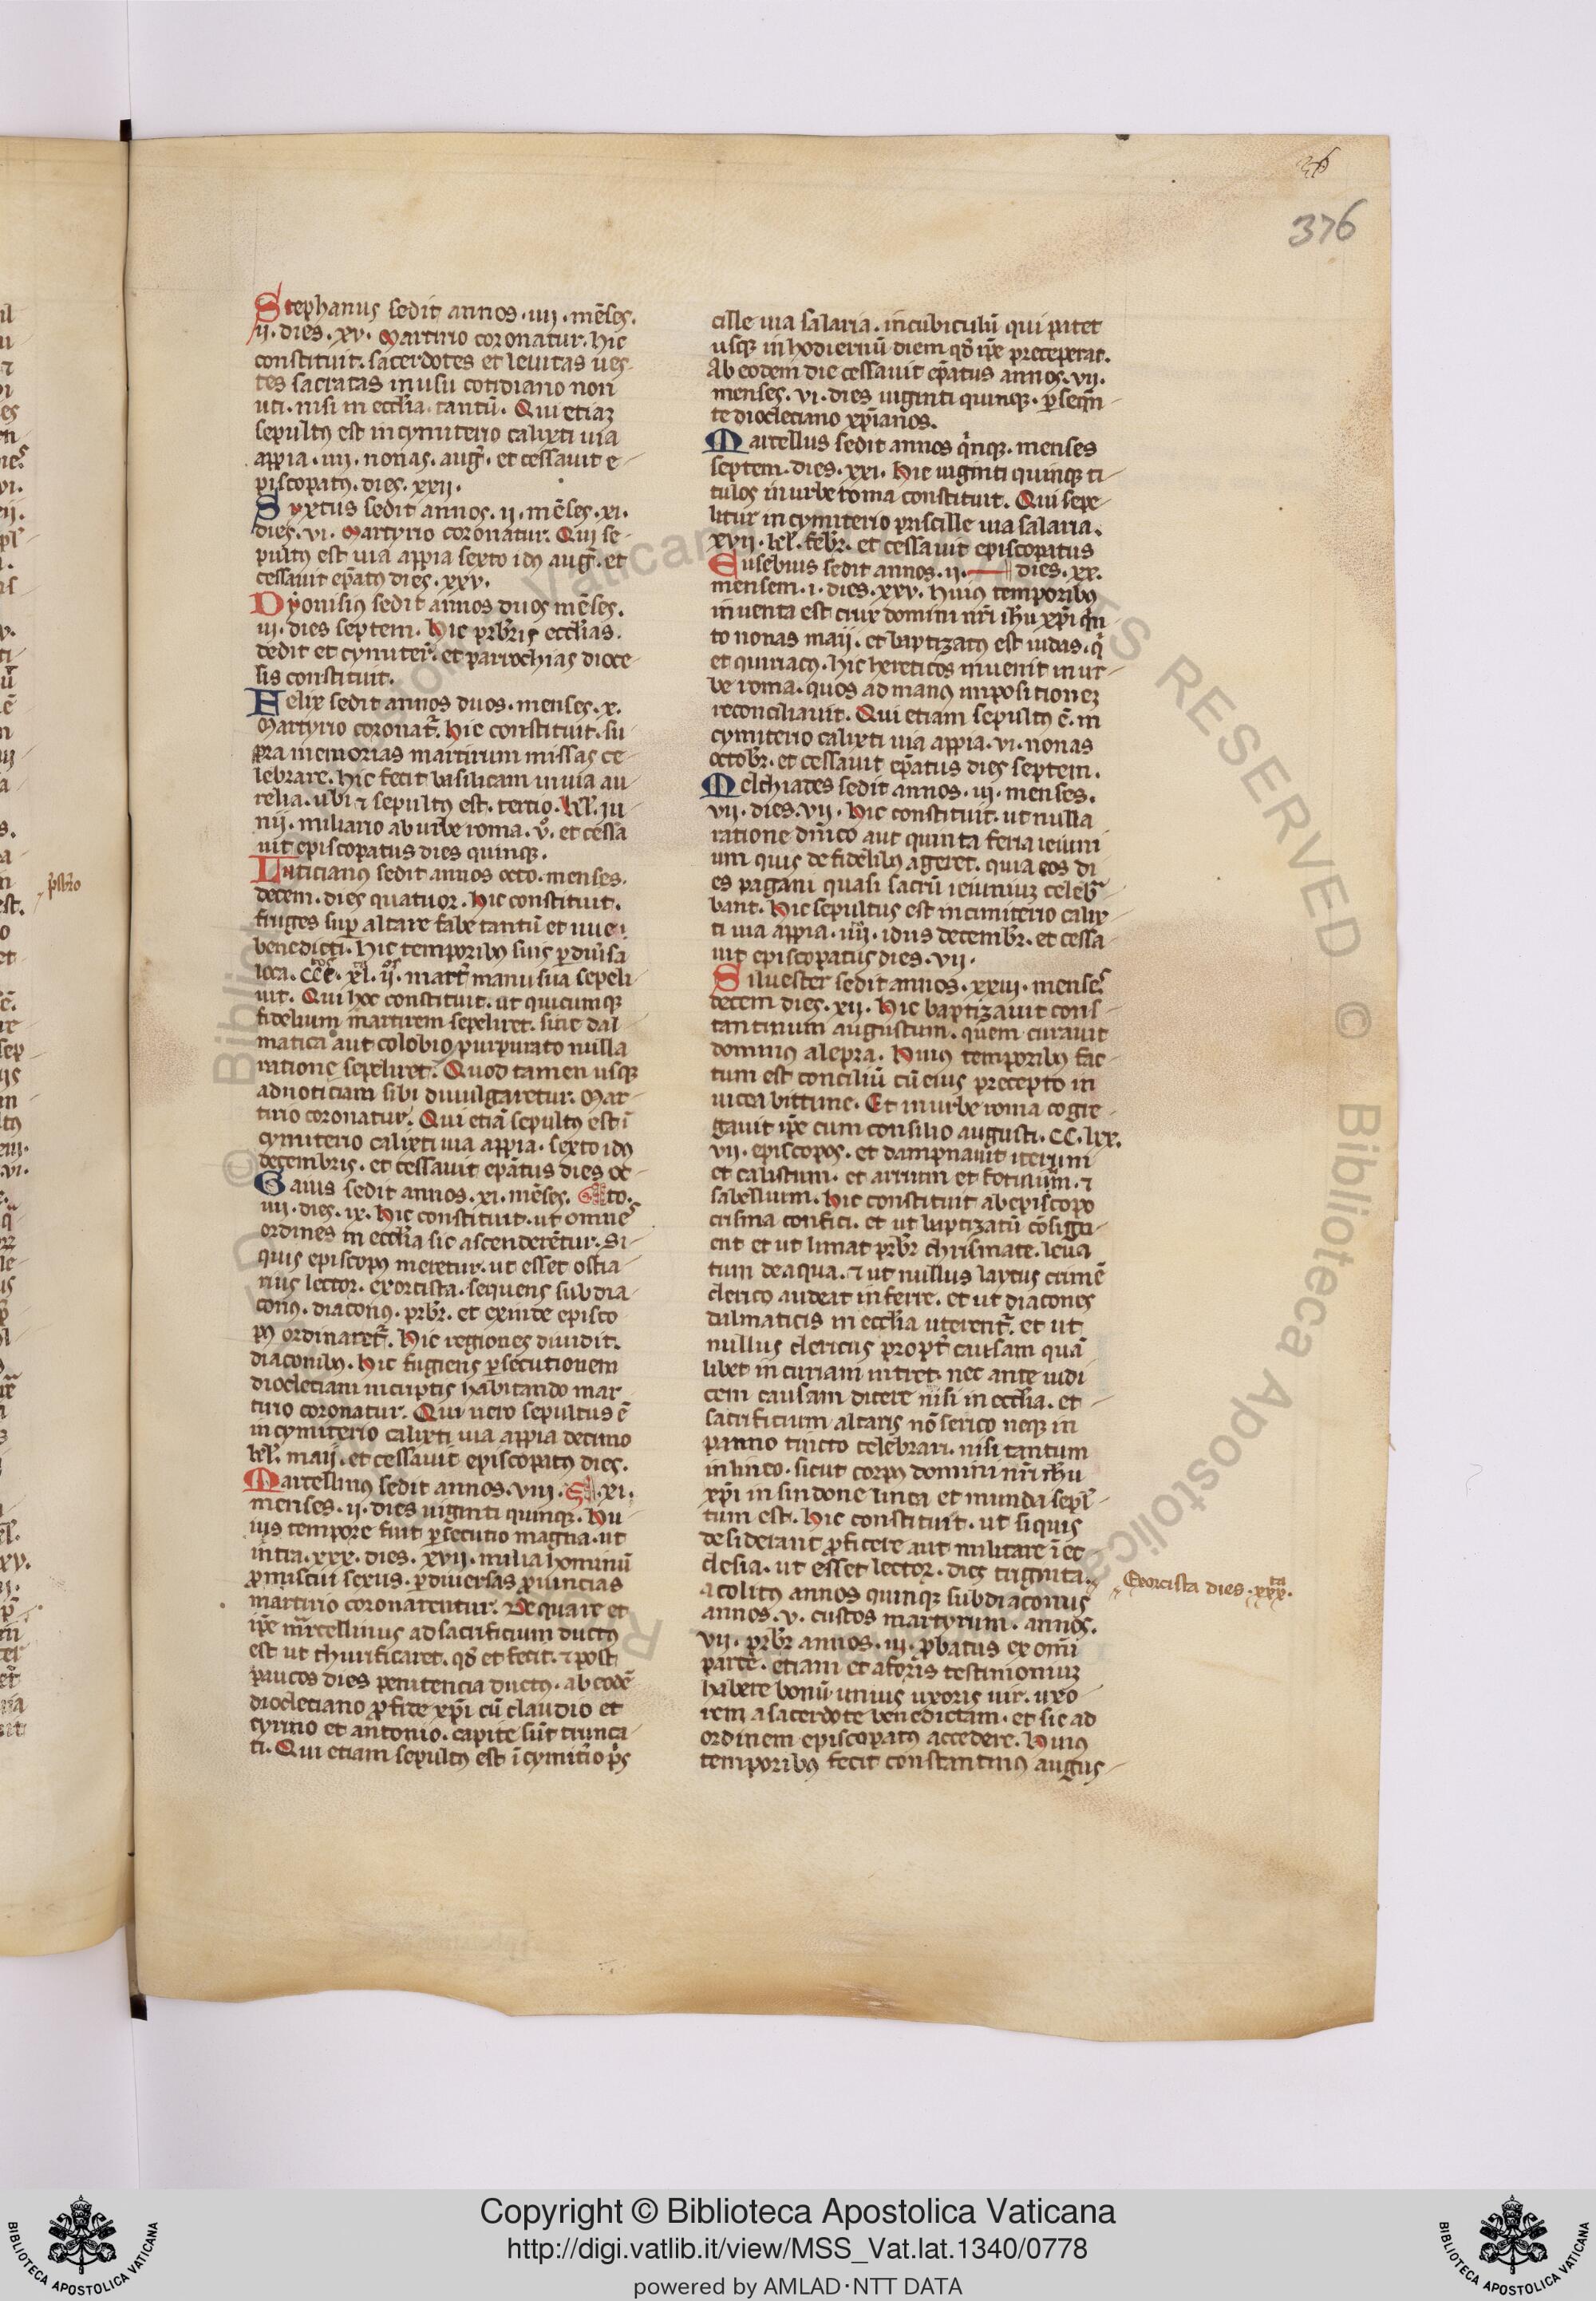 376
Stephanus sedit annos .iiij. mẽses.
ii. dies .xv. Martirio coronatur. hic
constituit. sacerdotes et leuitas ues-
tes sacratas in usu cotidiano non
uti. nisi in eccl̃ia. tantũ. Qui etiaʒ
sepultꝰ est in cymiterio calixti uia
appia .iiij. nonas. aug̃. et cessauit e-
piscopatꝰ. dies .xxii.
Syxtus sedit annos .ii. mẽses .xi.
dies .vi. Martyrio coronatur. Qui se-
pultꝰ est uia appia sexto idꝰ aug̃. et
cessauit ep̃atꝰ dies .xxv.
Dyonisiꝰ sedit annos duos mẽses.
iii. dies septem. hic prb̃ris eccl̃ias.
dedit et cymiter̃. et parrochias dioce-
sis constituit.
Felix sedit annos duos. menses .x.
Martyrio coronat̃. hic constituit. su-
pra memorias martirum missas ce-
lebrare. hic fecit basilicam in uia au-
relia. ubi ⁊ sepultꝰ est. tertio. kl̃. iu-
nii. miliario ab urbe roma .v̊. et cessa
uit episcopatus dies quinqꝫ.
Luticianꝰ sedit annos octo. menses.
decem. dies quatuor. hic constituit.
fruges sup̱ altare fabe tantũ et uue
benedicti. hic temporibꝰ suis ꝑ diu̾sa
loca. CCC. xl. ij. mart̃ manu sua sepeli-
uit. Qui hoc constituit. ut quicumqꝫ
fidelium martirem sepeliret. sine dal-
matica aut colobio purpurato nulla
ratione sepeliret. Quod tamen usqꝫ
ad noticiam sibi diuulgaretur. Mar-
tirio coronatur. Qui etiã sepultꝰ est ĩ
cymiterio calixti uia appia. sexto idꝰ
decembris. et cessauit ep̃atus dies oc-
Gaius sedit annos .xi. mẽses. to.
iiij. dies .ix. hic constituit. ut omnes
ordines in eccl̃ia sic ascenderẽtur. Si-
quis episcopꝰ meretur. ut esset ostia-
rius lector. exorcista. sequens subdia-
conꝰ. diaconꝰ. prb̃r. et exinde episco
pꝰ ordinaret̃. hic regiones diuidit.
diaconibꝰ. hic fugiens ꝑsecutionem
diocletiani in criptis habitando mar
tirio coronatur. Qui uero sepultus ẽ
in cymiterio calixti uia appia decimo
kl̃. maij. et cessauit episcopatꝰ dies.
Marcellinꝰ sedit annos .viii. .xi.
menses .ii. dies uiginti quinqꝫ. hu-
ius tempore fuit ꝑsecutio magna. ut
intra .xxx. dies .xvii. milia hominũ
ꝓmiscui sexus. ꝑ diuersas ꝓuincias
martirio coronarentur. De qua re et
ip̃e marcellinus ad sacrificium ductꝰ
est ut thurificaret. qđ et fecit. ⁊ post
paucos dies penitencia ductꝰ. ab eodẽ
diocletiano ꝓ fide xp̃i cũ claudio et
cyrino et antonio. capite sũt trunca-
ti. Qui etiam sepultꝰ est ĩ cymit̾io p̃s
cille uia salaria. in cubiculũ qui patet
usqꝫ in hodiernũ diem qđ ip̃e preceperat.
Ab eodem die cessauit ep̃atus annos .vii.
menses .vi. dies uiginti quinqꝫ. ꝑseq̃n
te diocletiano xp̃ianos.
Marcellus sedit annos q̾nqꝫ. menses
septem. dies .xxi. hic uiginti quinqꝫ ti-
tulos in urbe roma constituit. Qui sepe-
litur in cymiterio priscille uia salaria.
xvii. kl̃. feb̃r. et cessauit episcopatus
Eusebius sedit annos .ii. dies .xx.
mensem .i. dies .xxv. huiꝰ temporibꝰ
inuenta est crux domini nr̃i ih̃u xp̃i qͥn
to nonas maij. et baptizatꝰ est iudas. q̾
et quiriacꝰ. hic hereticos inuenit in ur-
be roma. quos ad manꝰ impositioneʒ
reconciliauit. Qui etiam sepultꝰ ẽ. in
cymiterio calixti uia appia. vi. nonas
octob̃r. et cessauit ep̃atus dies septem.
Melchiades sedit annos .iii. menses.
vii. dies .vii. hic constituit. ut nulla
ratione dñico aut quinta feria ieiuni
um quis de fidelibꝰ ageret. quia eos di
es pagani quasi sacrũ ieiuniuʒ celeb̃
bant. hic sepultus est in cimiterio calix
ti uia appia. iiij. idus decemb̃r. et cessa-
uit episcopatus dies .vii.
Siluester sedit annos .xxiii. menses
decem dies .xii. hic baptizauit cons-
tantinum augustum. quem curauit
dominꝰ a lepra. huiꝰ temporibꝰ fac-
tum est conciliũ cũ eius precepto in
nicea bittinie. Et in urbe roma cogre-
gauit ip̃e cum consilio augusti. CC. lxx.
vii. episcopos. et dampnauit iterum
et calistum. et arrium et fotinum. ⁊
sabellium. hic constituit ab episcopo
crisma confici. et ut baptizatũ cõsign-
ent et ut liniat prb̃r chrismate. leua
tum de aqua. ⁊ ut nullus laycus crimẽ
clerico audeat inferre. et ut diacones
dalmaticis in eccl̃ia uterent̃. et ut
nullus clericus propt̾ causam quã
libet in curiam intret. nec ante iudi
cem causam dicere nisi in eccl̃ia. et
sacrificium altaris nõ serico neqꝫ in
panno tincto celebrari. nisi tantum
in lineo. sicut corpꝰ domini nr̃i ih̃u
xp̃i in sindone linea et munda sepl̃-
tum est. hic constituit. ut siquis
desiderant ꝓficere aut militare ĩ ec
clesia. ut esset lector. dies triginta.
Exorcista dies .xxx.ta
acolitꝰ annos quinqꝫ subdiaconus
annos .v. custos martyrum. annos.
vii. prb̃r annos .iii. ꝓbatus ex om̃i
parte. etiam et a foris testimoniuʒ
habere bonũ unius uxoris uir. uxo
rem a sacerdote benedictam. et sic ad
ordinem episcopatꝰ accedere. huiꝰ
temporibꝰ fecit constantinꝰ augus-
p̃sb̃ro
© Biblioteca Apostolica Vaticana
RESERVED
Copyright © Biblioteca Apostolica Vaticana
http://digi.vatlib.it/view/MSS_Vat.lat.1340/0778
powered by AMLAD·NTT DATA
BIBLIOTECA APOSTOLICA VATICANA
BIBLIOTECA APOSTOLICA VATICANA